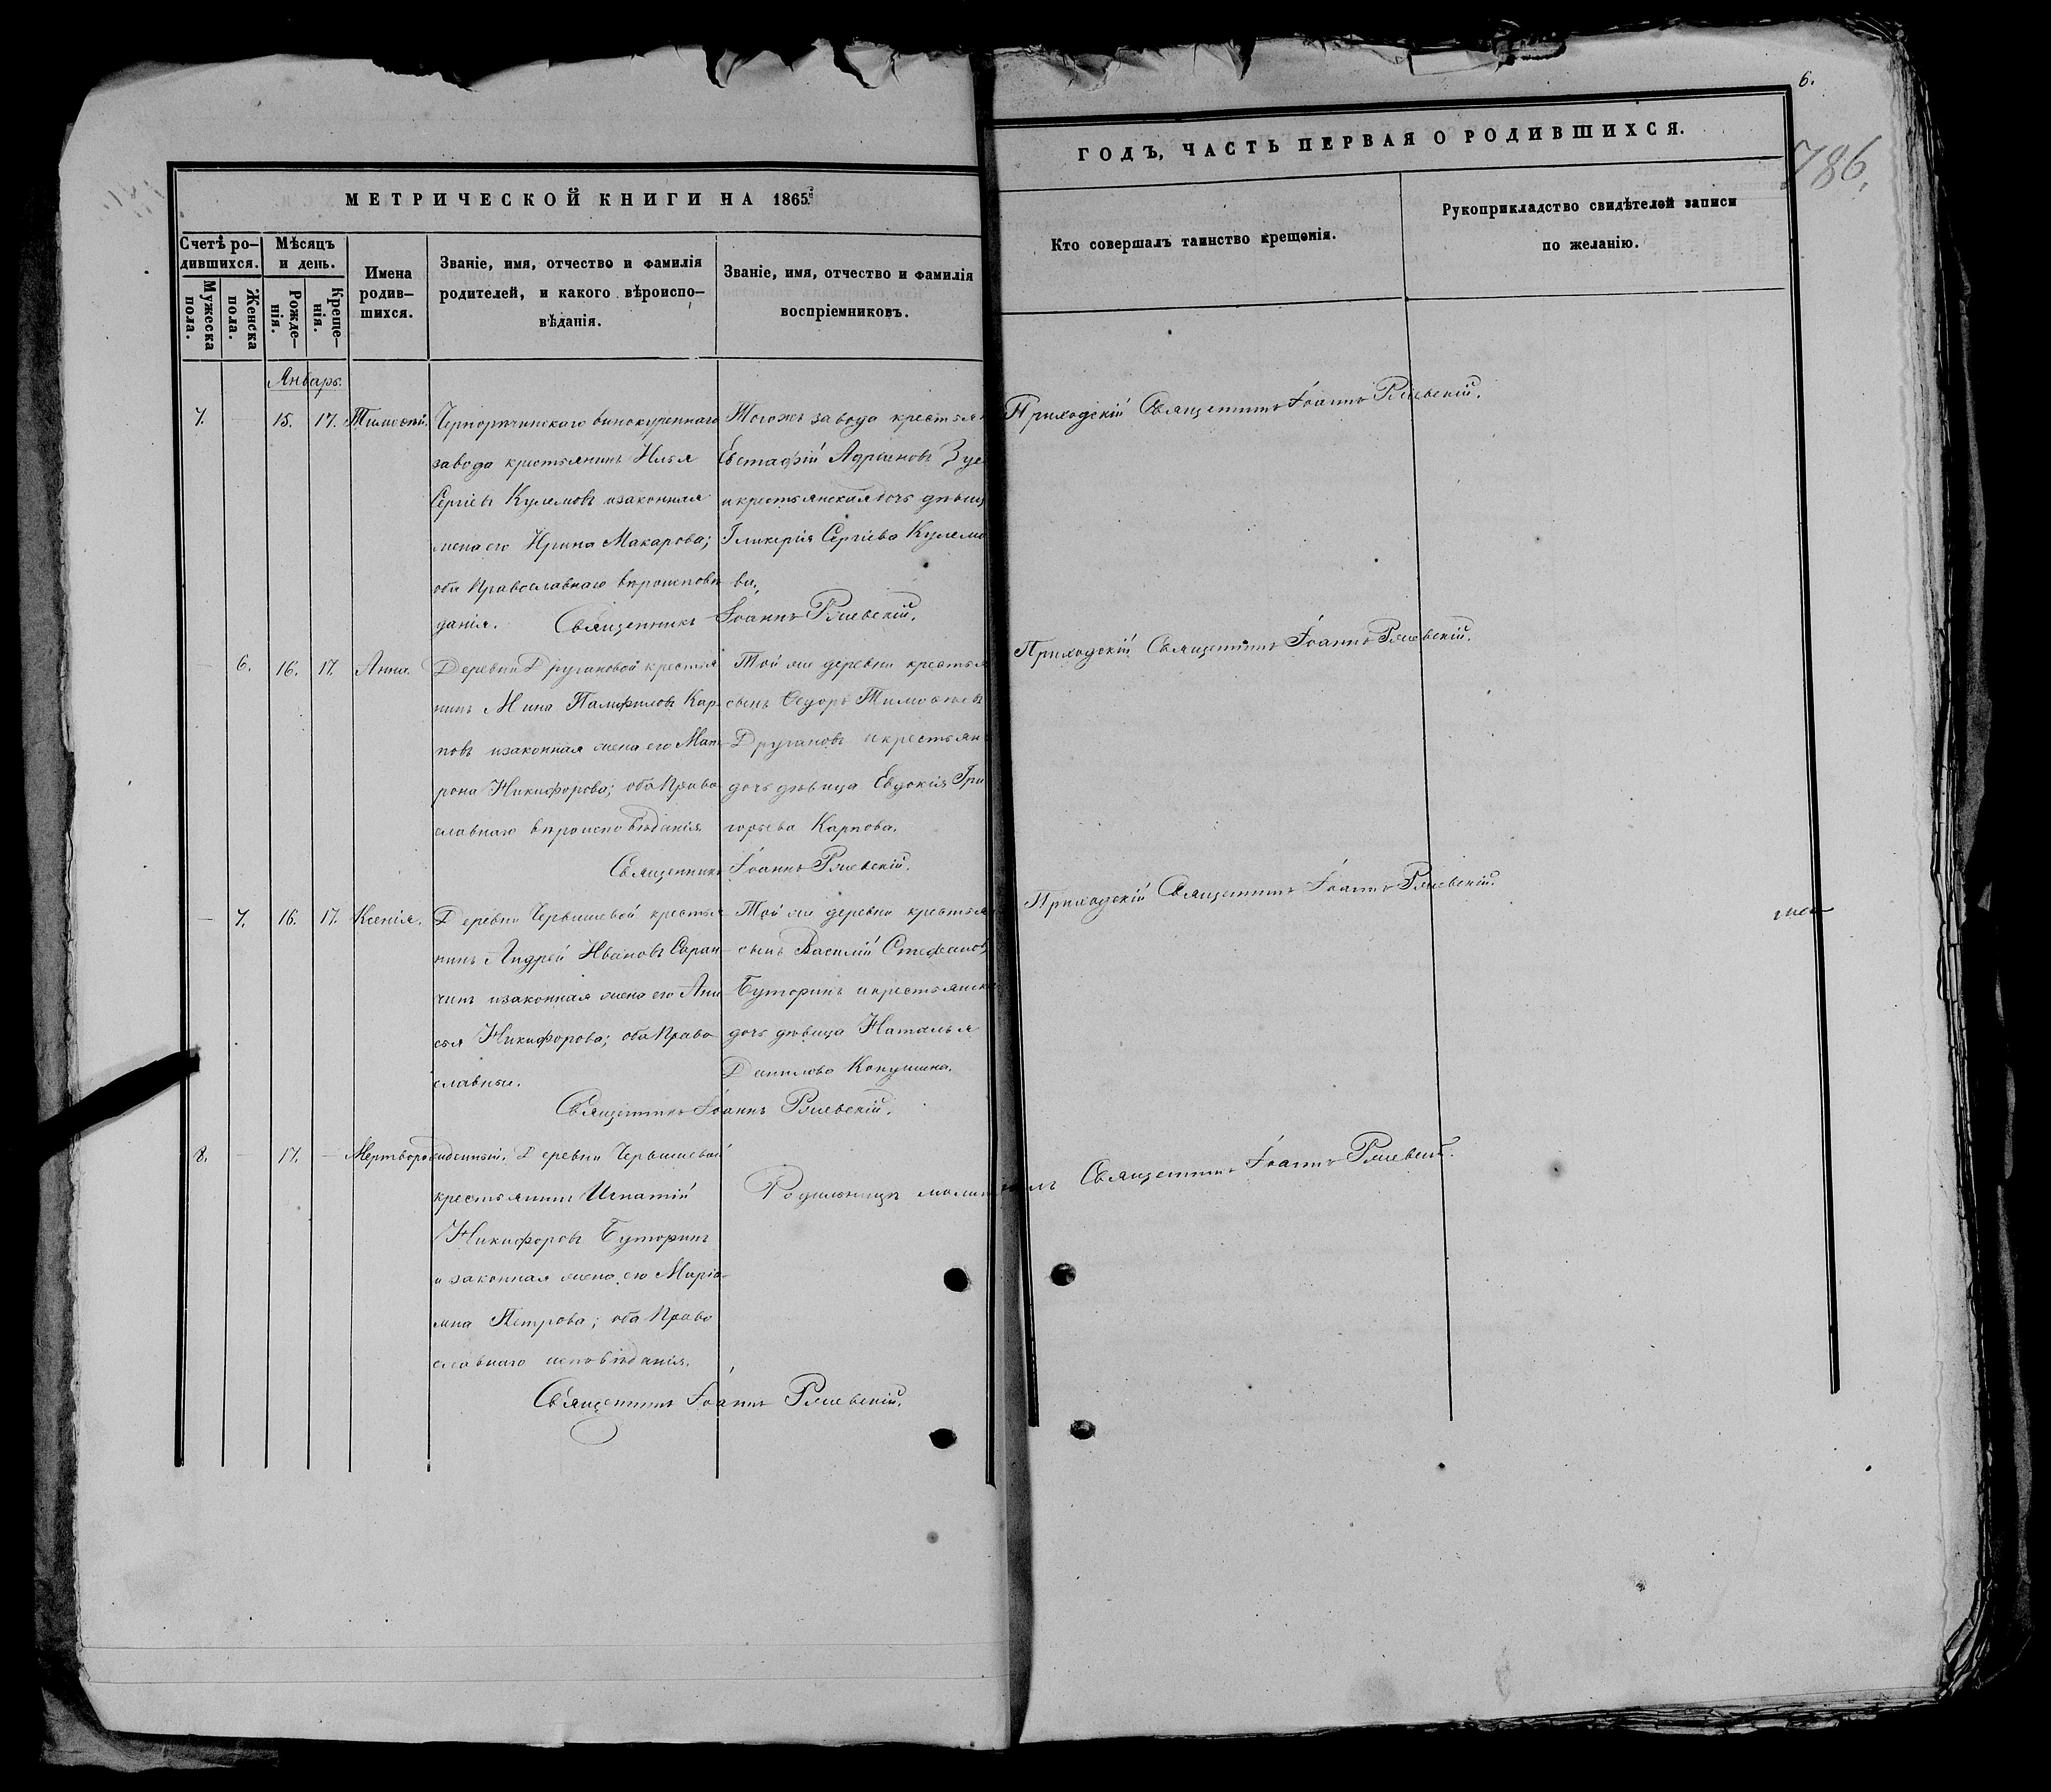 6.
786.
МЕТРИЧЕСКОЙ КНИГИ НА 1865й
ГОДЪ, ЧАСТЬ ПЕРВАЯ О РОДИВШИХСЯ.
Счетъ ро-
дившихся.
Мужеска
пола.
Женска
пола.
Мѣсяцъ
и день.
Рожде-
нія.
Креще-
нія.
Имена
родив-
шихся.
Званіе, имя, отчество и фамилія
родителей, и какого вѣроиспо-
вѣданія.
Званіе, имя, отчество и фамилія
воспріемниковъ.
Кто совершалъ таинство крещенія.
Рукоприкладство свидѣтелей записи
по желанію.
Январь.
7. — 15. 17. Тимоѳей.
Черторѣчинскаго винокуреннаго
завода крестьянинъ Илья
Сергіевъ Кулемовъ и законная
жена его Ирина Макарова;
оба Православнаго вѣроисповѣ
данія.
Тогожъ завода крестьян
Евстафій Адріановъ Зуе
и крестьянская дочь дѣвиц
Гликерія Сергіева Кулемо
ва.
Священникъ Іоаннъ Ржевскій.
Приходскій Священникъ Іоаннъ Ржевскій.
— 6. 16. 17. Анна.
Деревни Другановой крестья
нинъ Мина Памфиловъ Кар
повъ и законная жена его Мат
рона Никифорова; оба Право
славнаго вѣроисповѣданія.
Той же деревни крестья
сынъ Ѳедоръ Тимоѳеевъ
Другановъ и крестьян
дочь дѣвица Евдокія Гри
горьева Карпова.
Священникъ Іоаннъ Ржевскій.
Приходскій Священникъ Іоаннъ Ржевскій.
— 7. 16. 17. Ксенія.
Деревни Червишевой крестья
нинъ Андрей Ивановъ Саран
чинъ и законная жена его Ани
сья Никифорова; оба Право
славные.
Той же деревни крестья
сынъ Василій Стефановъ
Буторинъ и крестьянск
дочь дѣвица Наталья
Данилова Кокушина.
Священникъ Іоаннъ Ржевскій.
Приходскій Священникъ Іоаннъ Ржевскій.
8. — 17. — Мертворожденный. Деревни Червишевой
крестьянинъ Игнатій
Никифоровъ Буторинъ
и законная жена его Маріа
мна Петрова; оба Право
славнаго исповѣданія.
Родильницѣ молитвилъ Священникъ Іоаннъ Ржевскій.
Священникъ Іоаннъ Ржевскій.